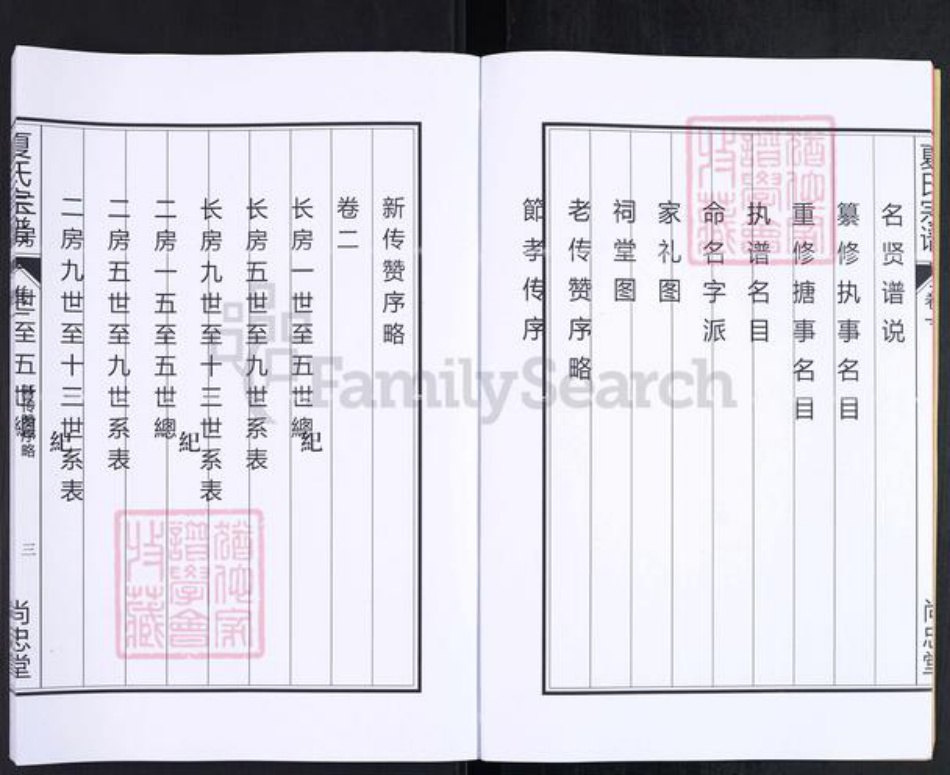 夏氏宗谱
尚忠堂
名贤谱说
纂修执事名目
重修搪事名目
执谱名目
命名字派
家礼图
祠堂图
老传赞序略
節孝传序
新传赞序略
卷二
长房一世至五世總紀
长房五世至九世系表
长房九世至十三世系表
二房一五至五世總紀
二房五世至九世系表
二房九世至十三世系表
夏氏宗谱
世至五世總紀
三
尚忠堂
FamilySearch